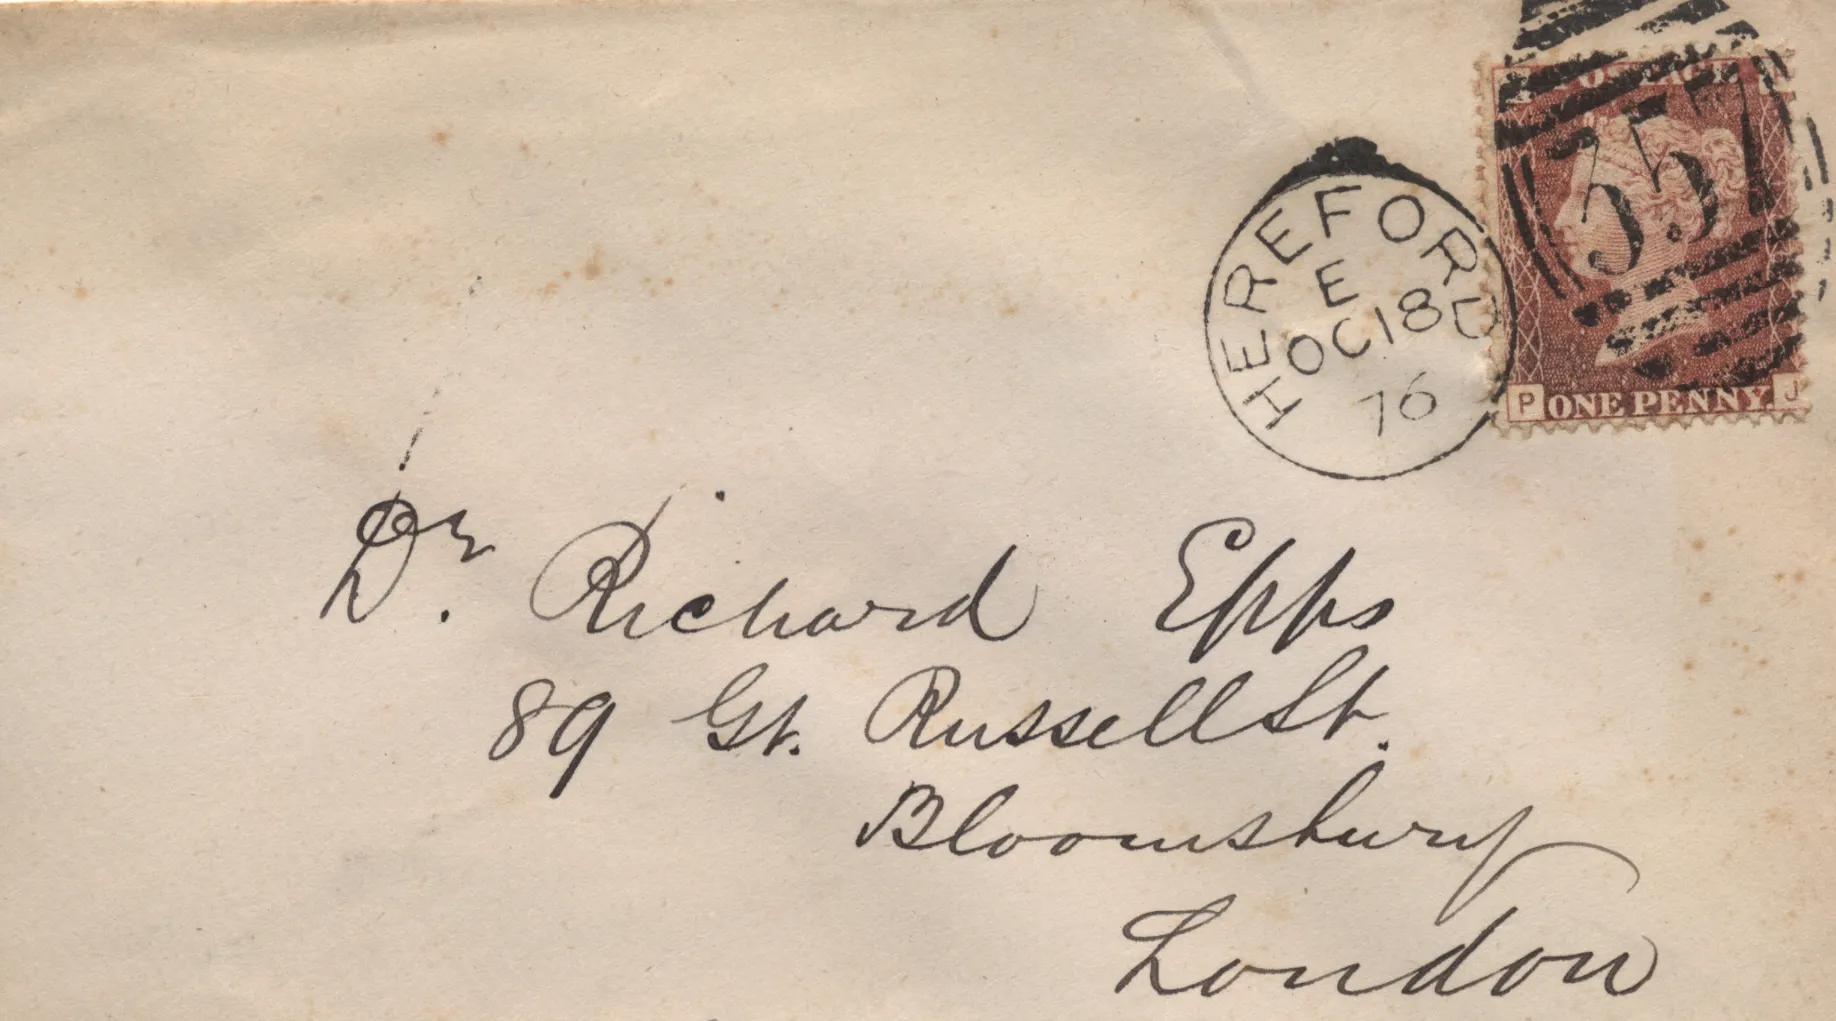 POSTAGE
357
HEREFORD
E
OC 18
76
P ONE PENNY J
Dr. Richard Epps
89 Gt. Russell St.
Bloomsbury
London